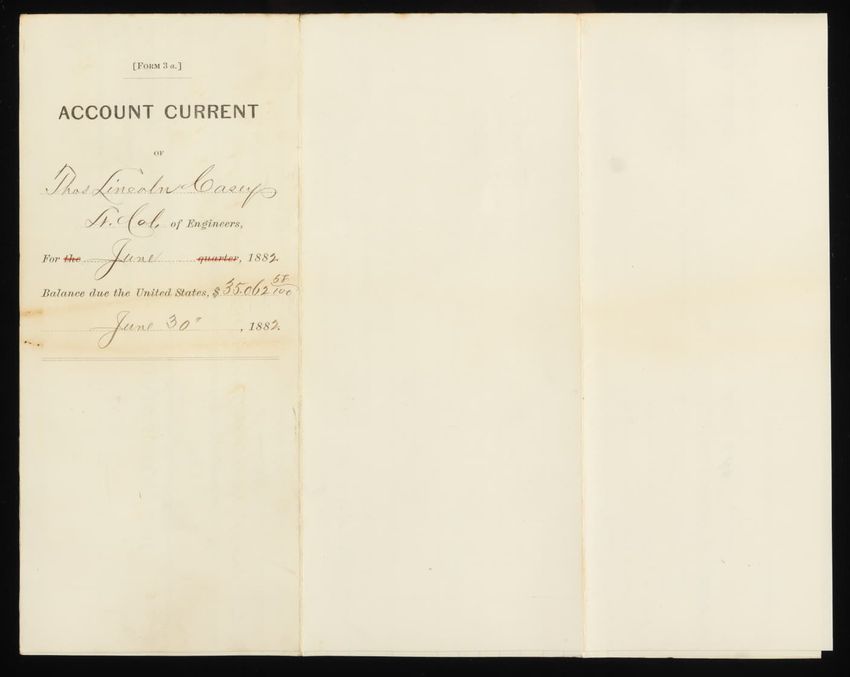 [FORM 3 a.]
ACCOUNT CURRENT
OF
Thos Lincoln Casey
Lt. Col. of Engineers,
For the June quarter, 1882.
Balance due the United States, $35.062 58/100
June 30", 1882.